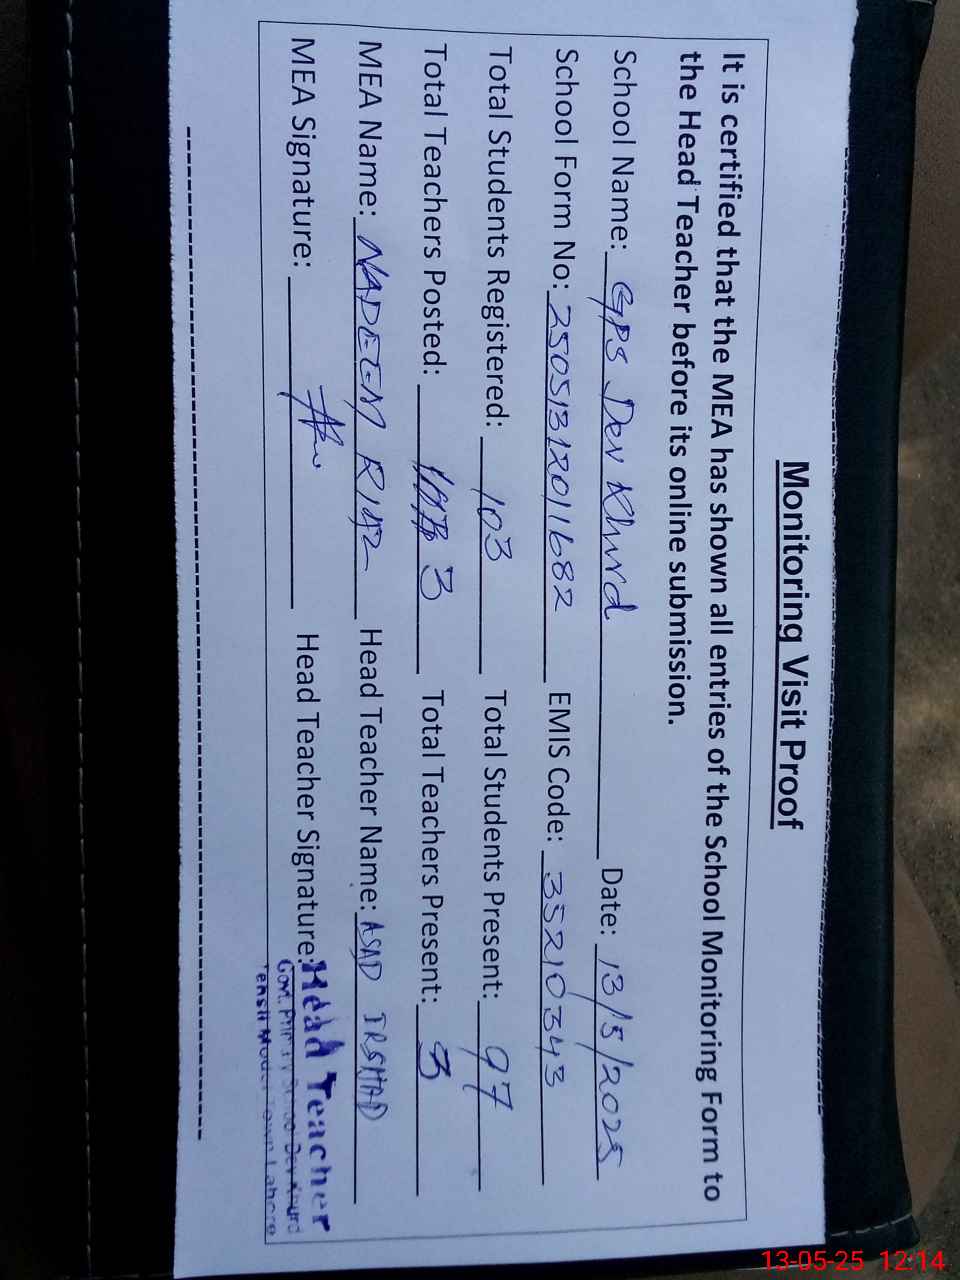 Monitoring Visit Proof
It is certified that the MEA has shown all entries of the School Monitoring Form to
the Head Teacher before its online submission.
School Name: GPS Dev Khurd Date: 13/5/2025
School Form No: 25051312011682 EMIS Code: 35210343
Total Students Registered: 103 Total Students Present: 97
Total Teachers Posted: 3 Total Teachers Present: 3
MEA Name: NADEEM RIAZ Head Teacher Name: ASAD IRSHAD
MEA Signature: Head Teacher Signature:
Head Teacher
Govt. Primary School Dev Khurd
Tehsil Model Town Lahore
13-05-25 12:14